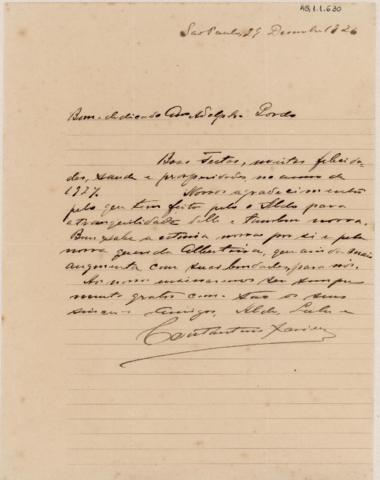 AG.1.1.630
São Paulo, 29 Dezembro 1926
Bom e dedicado Am.º Adolpho Gordo
Boas Festas, muitas felicida-
des, saude e prosperidades no anno de
1927. Nossos agradecimentos
pelo que tem feito pelo Aldo para
a tranquilidade delle e tambem nossa.
Bem sabe a estima nossa por si e pela
nossa querida Albertina, que ainda mais
augmenta com suas bondades para nós.
ser sempre
muito gratos com são os seus
sinceros amigos, Aldo, Lula e
Constantino Xavier